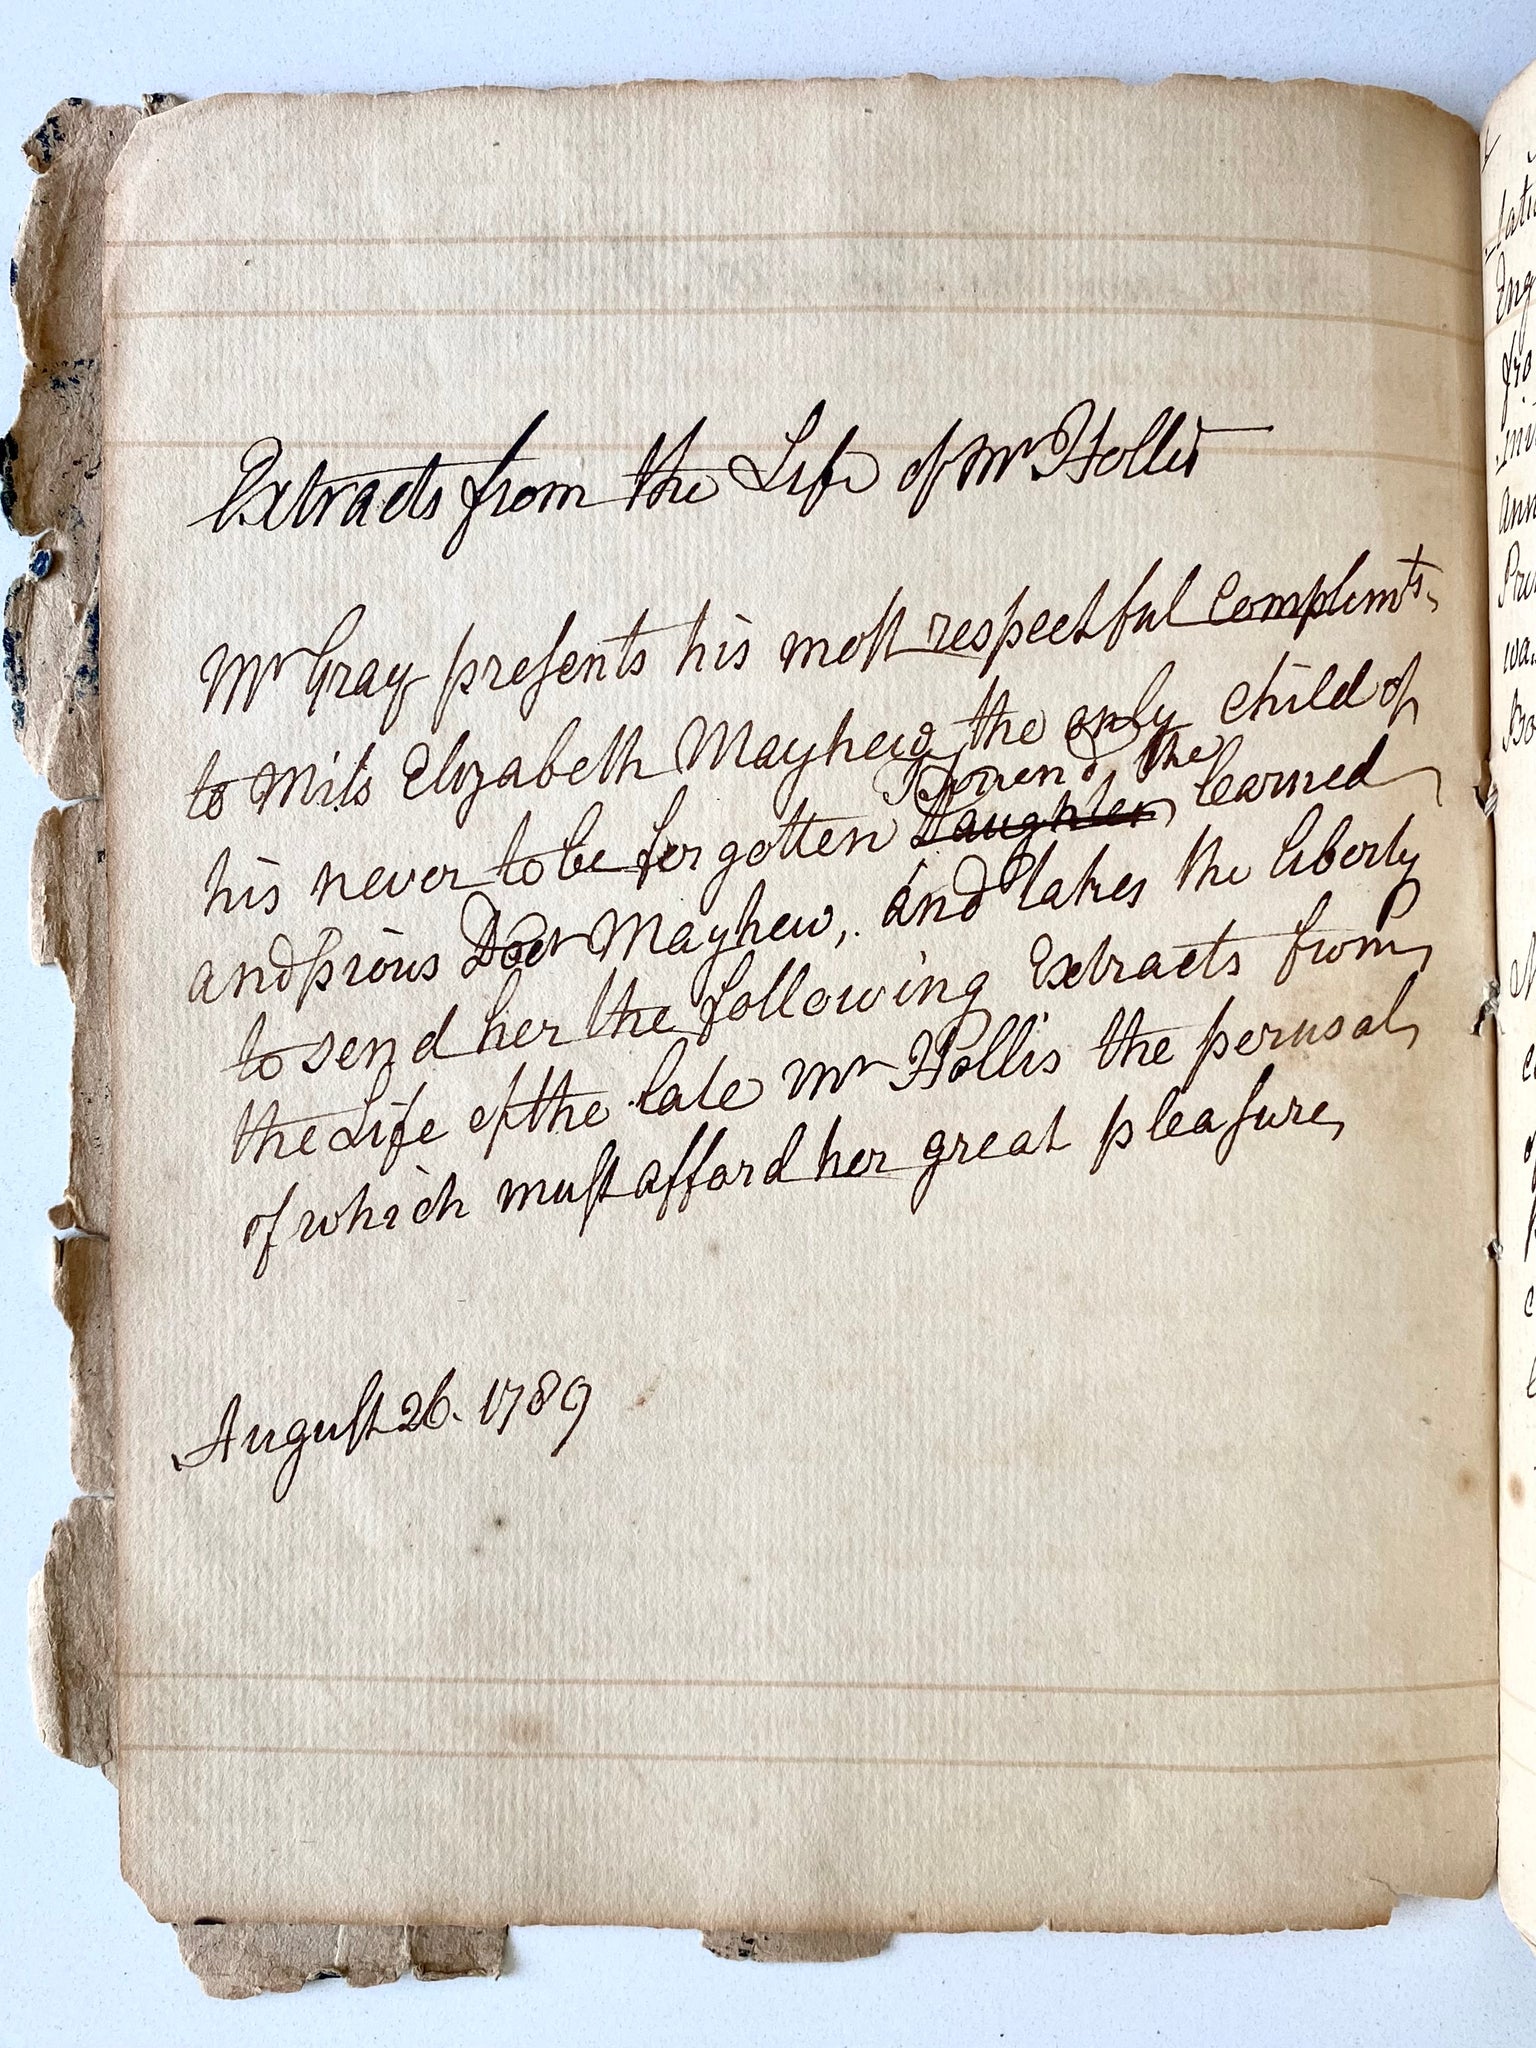 Extracts from the Life of Mr Hollis
Mr Gray presents his most respectful complimts.
to Miss Elizabeth Mayhew the only child of
Friend, the
his never to be forgotten Daughter learned
and pious Doctr Mayhew, and takes the liberty
to send her the following Extracts from
the Life of the late Mr Hollis the perusal
of which must afford her great pleasure,
August 26. 1789